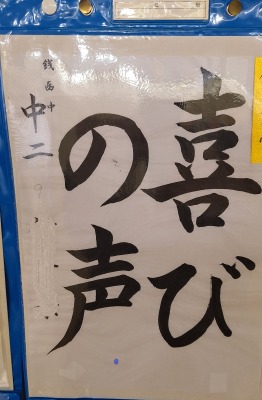 喜び
の声
銭函中
中二